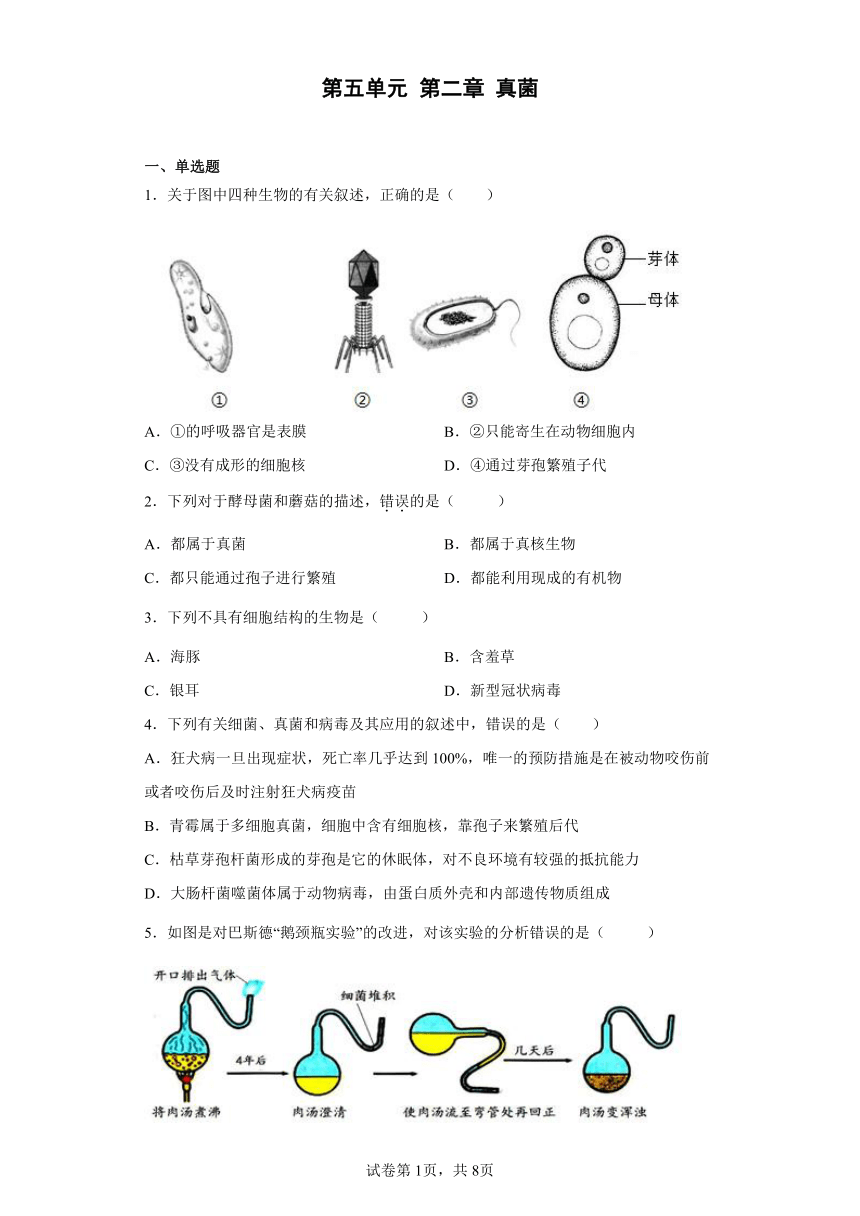 第五单元 第二章 真菌
一、单选题
1．关于图中四种生物的有关叙述，正确的是（　　）
芽体
母体
① ② ③ ④
A．①的呼吸器官是表膜 B．②只能寄生在动物细胞内
C．③没有成形的细胞核 D．④通过芽孢繁殖子代
2．下列对于酵母菌和蘑菇的描述，错误的是（　　）
A．都属于真菌 B．都属于真核生物
C．都只能通过孢子进行繁殖 D．都能利用现成的有机物
3．下列不具有细胞结构的生物是（　　）
A．海豚 B．含羞草
C．银耳 D．新型冠状病毒
4．下列有关细菌、真菌和病毒及其应用的叙述中，错误的是（　　）
A．狂犬病一旦出现症状，死亡率几乎达到 100%，唯一的预防措施是在被动物咬伤前
或者咬伤后及时注射狂犬病疫苗
B．青霉属于多细胞真菌，细胞中含有细胞核，靠孢子来繁殖后代
C．枯草芽孢杆菌形成的芽孢是它的休眠体，对不良环境有较强的抵抗能力
D．大肠杆菌噬菌体属于动物病毒，由蛋白质外壳和内部遗传物质组成
5．如图是对巴斯德“鹅颈瓶实验”的改进，对该实验的分析错误的是（　　）
开口排出气体
细菌堆积
4年后
几天后
将肉汤煮沸 肉汤澄清 使肉汤流至弯管处再回正 肉汤变浑浊
试卷第 1页，共 8页